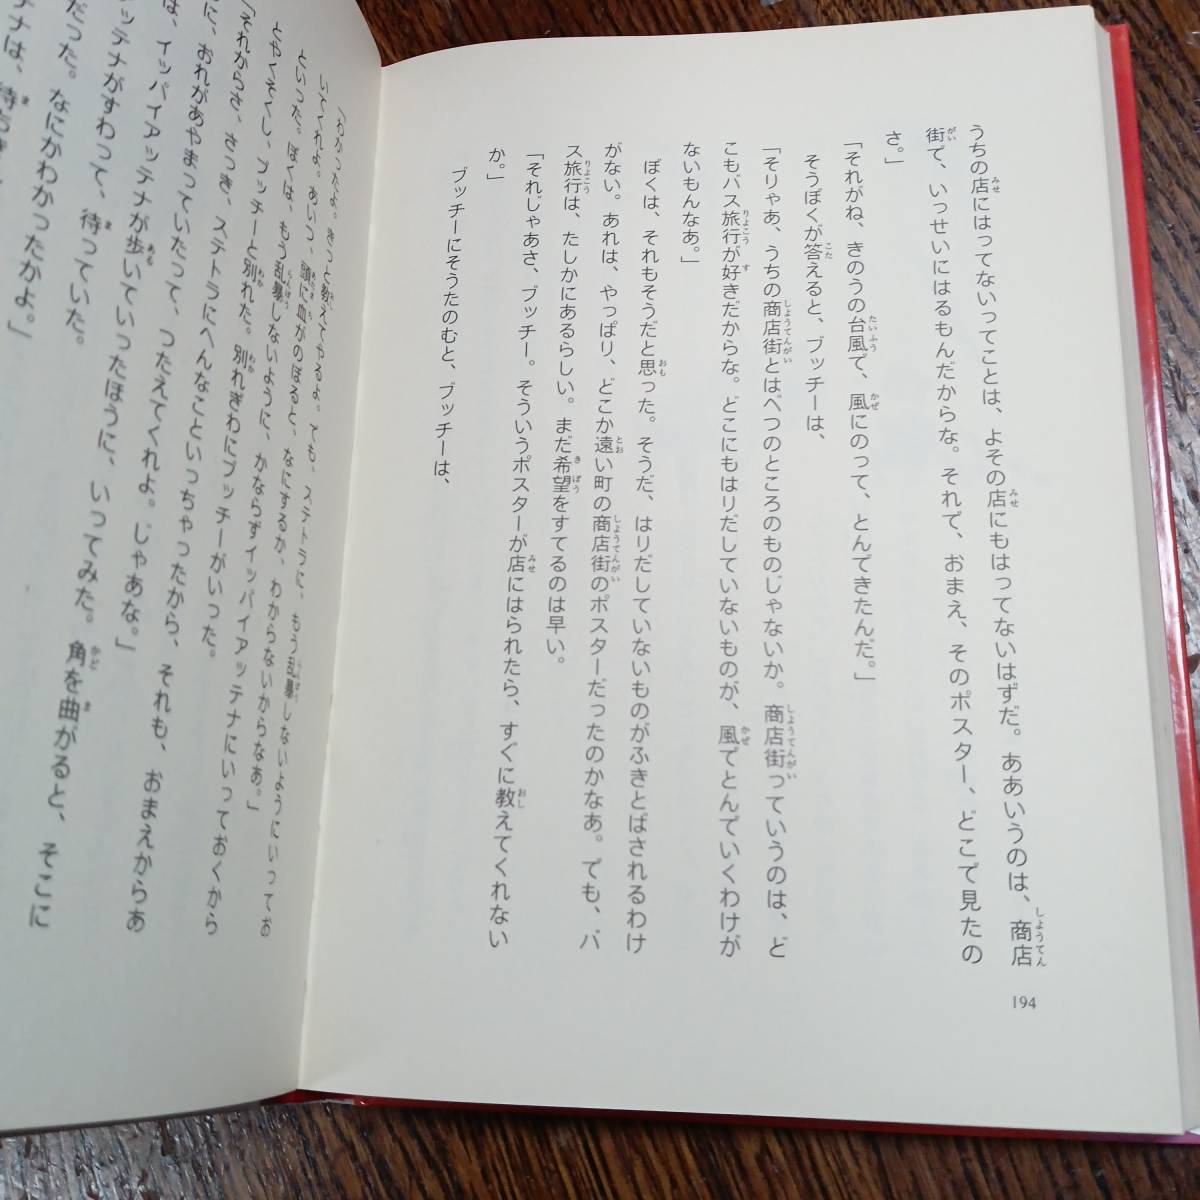 うちの店にはってないってことは、よその店にもはってないはずだ。ああいうのは、商店
街で、いっせいにはるもんだからな。それで、おまえ、そのポスター、どこで見たの
さ。」
「それがね、きのうの台風で、風にのって、とんできたんだ。」
そうぼくが答えると、ブッチーは、
「そりゃあ、うちの商店街とはべつのところのものじゃないか。商店街っていうのは、ど
こもバス旅行が好きだからな。どこにもはりだしていないものが、風でとんでいくわけが
ないもんなあ。」
ぼくは、それもそうだと思った。そうだ、はりだしていないものがふきとばされるわけ
がない。あれは、やっぱり、どこか遠い町の商店街のポスターだったのかなあ。でも、バ
ス旅行は、たしかにあるらしい。まだ希望をすてるのは早い。
「それじゃあさ、ブッチー。そういうポスターが店にはられたら、すぐに教えてくれない
か。」
ブッチーにそうたのむと、ブッチーは、
194
「わかったよ。きっと教えてやるよ。でも、ステトラに、もう乱暴しないようにいってお
いてくれよ。あいつ、頭に血がのぼると、なにするか、わからないからなあ。」
といった。ぼくは、もう乱暴しないように、かならずイッパイアッテナにいっておくから
とやくそくし、ブッチーと別れた。別れぎわにブッチーがいった。
「それからさ、さっき、ステトラにへんなこといっちゃったから、それも、おまえからあ
に、おれがあやまっていたって、つたえてくれよ。じゃあな。」
は、イッパイアッテナが歩いていったほうに、いってみた。角を曲がると、そこに
ッテナがすわって、待っていた。
だった。なにかわかったかよ。」
テナは、待ち